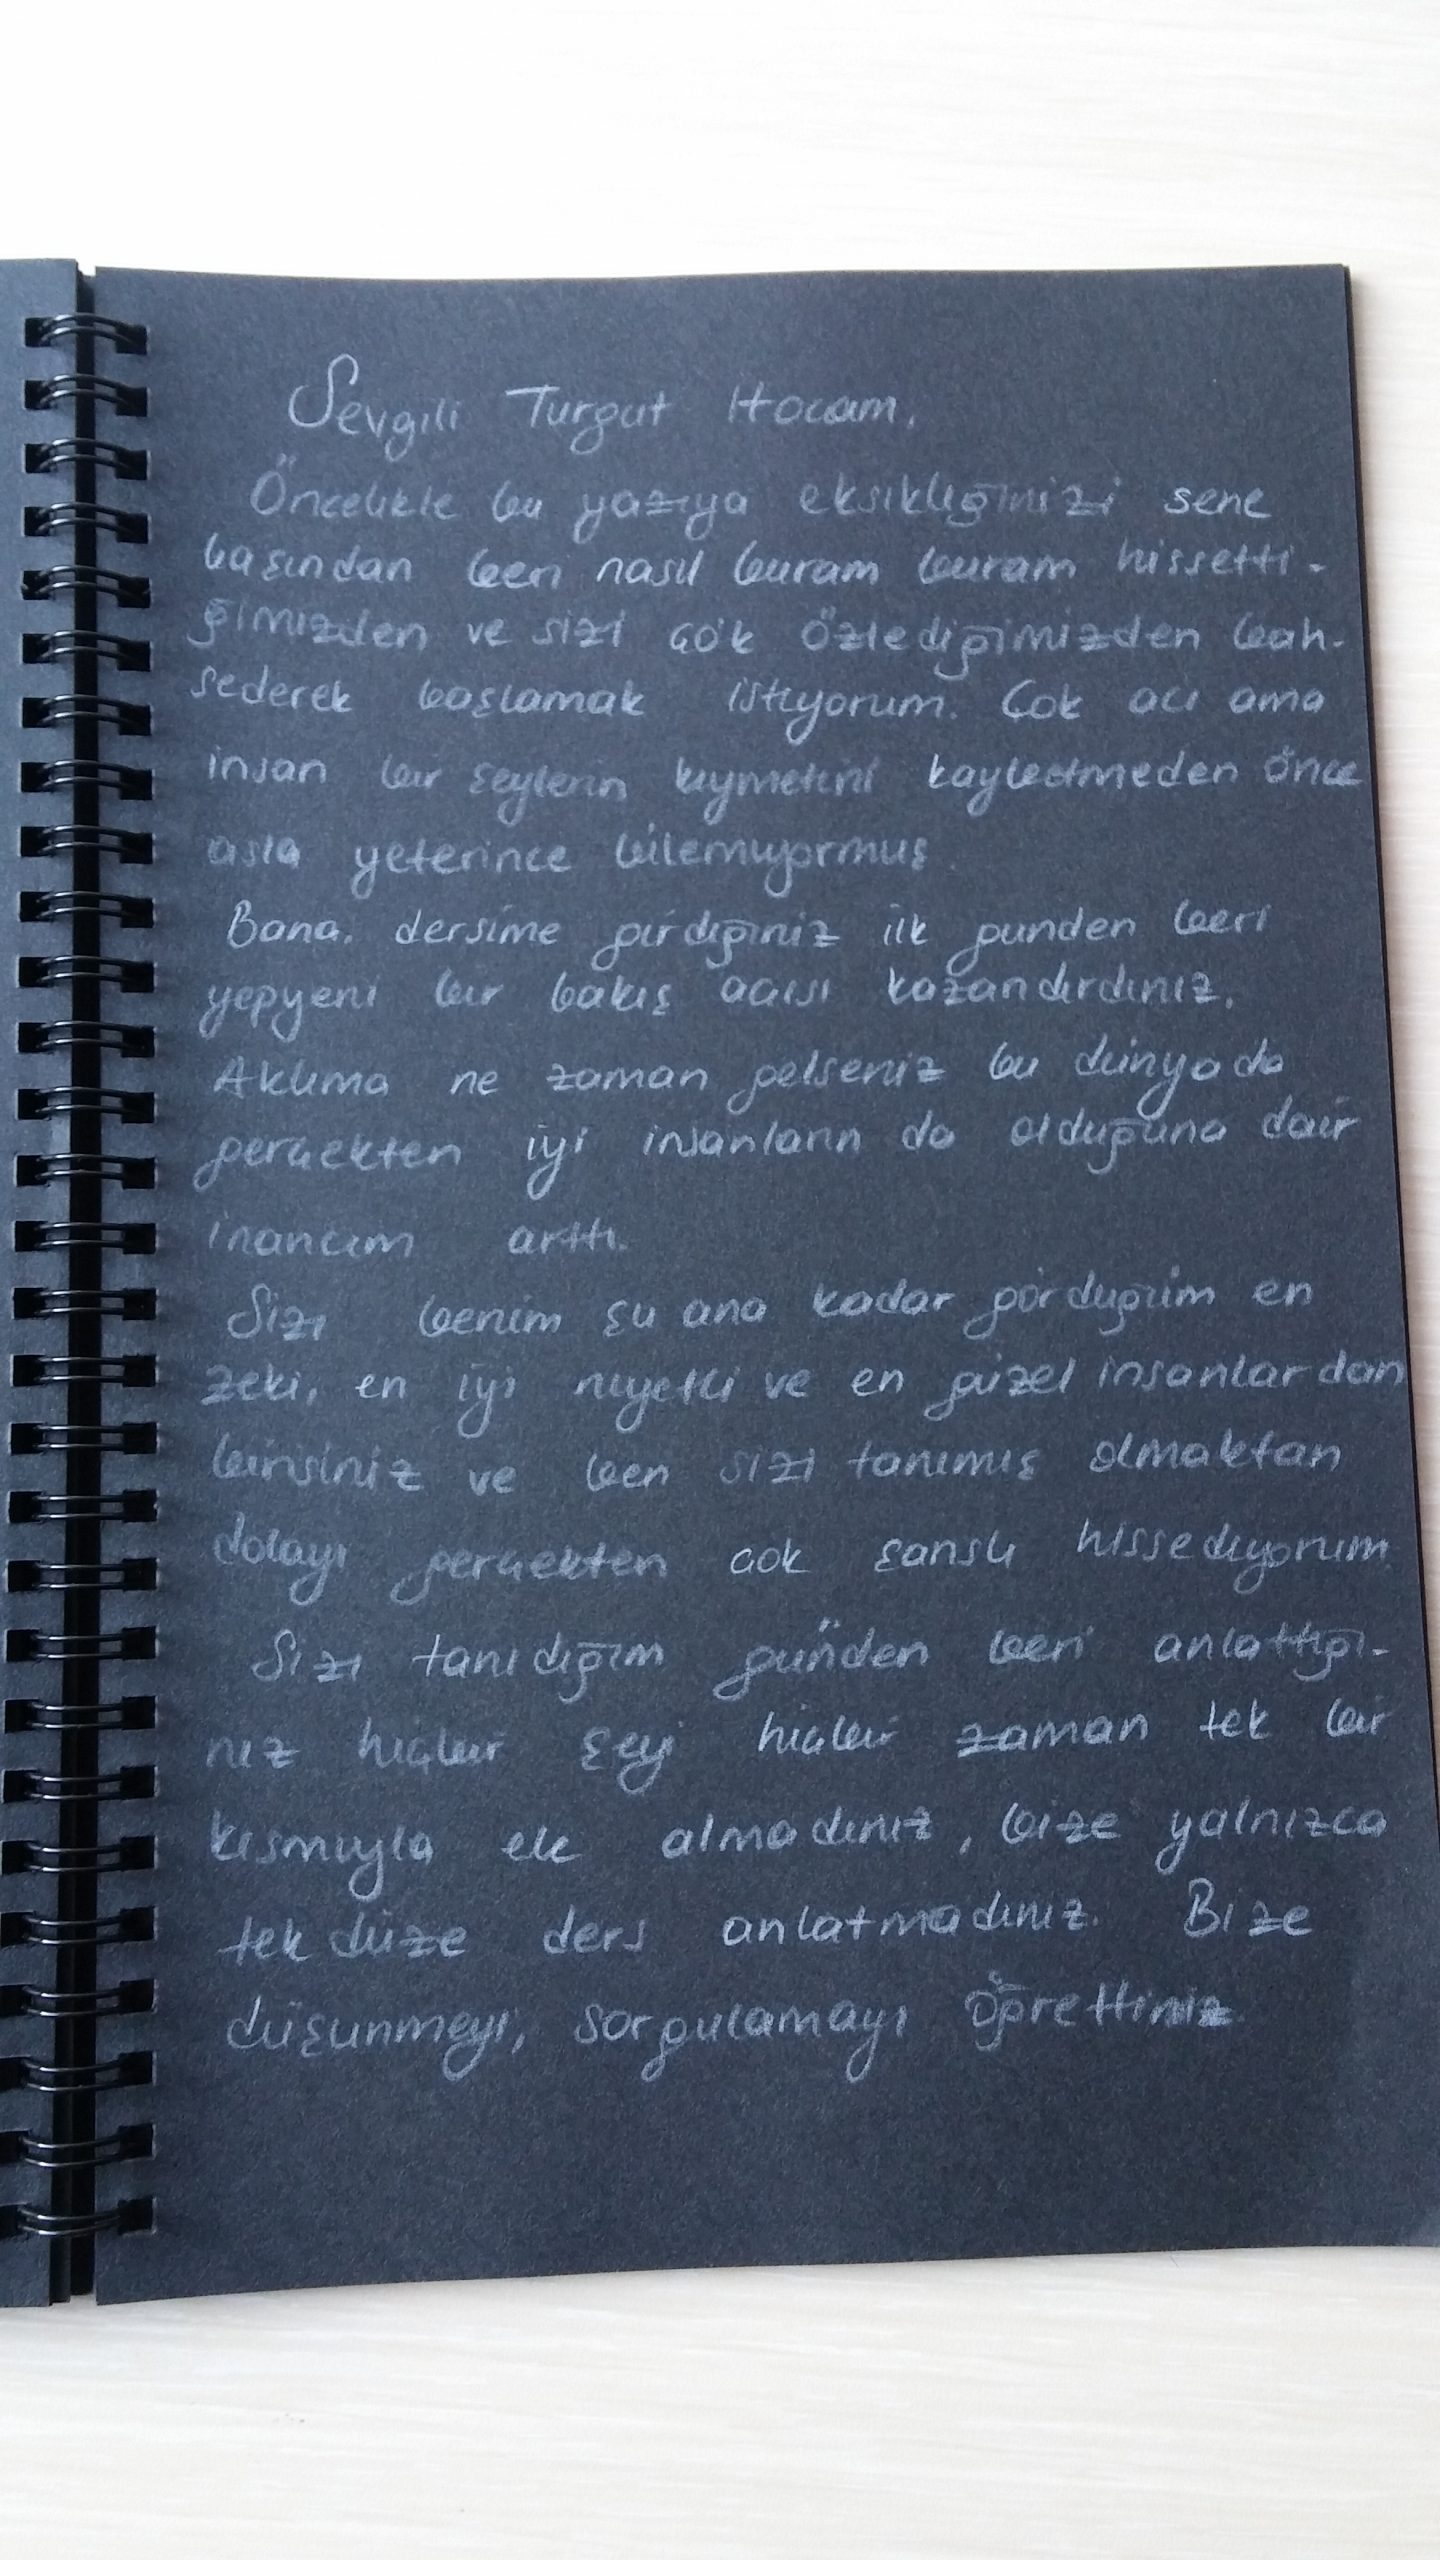 Sevgili Turgut Hocam,
Öncelikle bu yazıya eksikliğinizi sene
başından beri nasıl buram buram hissetti-
ğimizden ve sizi çok özlediğimizden bah-
sederek başlamak istiyorum. Çok acı ama
insan bir şeylerin kıymetini kaybetmeden önce
asla yeterince bilemiyormuş
Bana, dersime girdiğiniz ilk günden beri
yepyeni bir bakış açısı kazandırdınız.
Aklıma ne zaman gelseniz bu dünyada
gerçekten iyi insanların da olduğuna dair
inancım arttı.
Siz benim şu ana kadar gördüğüm en
zeki, en iyi niyetli ve en güzel insanlardan
birisiniz ve ben sizi tanımış olmaktan
dolayı gerçekten çok şanslı hissediyorum
Sizi tanıdığım günden beri anlattığı-
nız hiçbir şeyi hiçbir zaman tek bir
kısmıyla ele almadınız, bize yalnızca
tek düze ders anlatmadınız. Bize
düşünmeyi, sorgulamayı öğrettiniz.